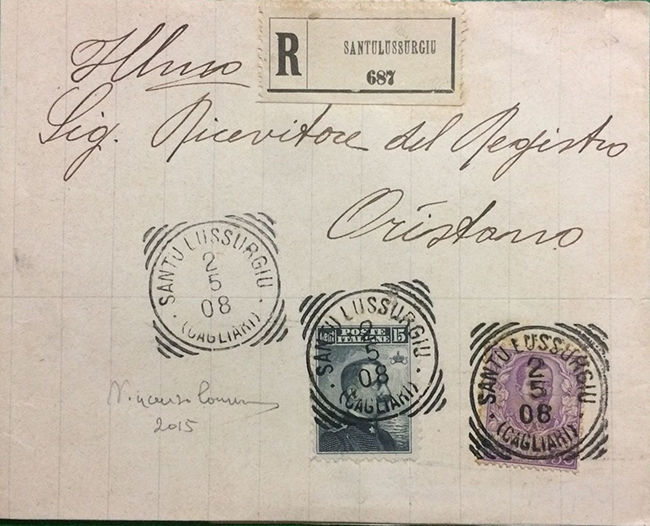 R
SANTULUSSURGIU
687
Illmo
Sig. Ricevitore del Registro
Oristano
SANTU LUSSURGIU
2
5
08
(CAGLIARI)
SANTU LUSSURGIU
2
5
08
(CAGLIARI)
POSTE
ITALIANE
15
SANTU LUSSURGIU
2
5
08
(CAGLIARI)
Vincenzo
2015